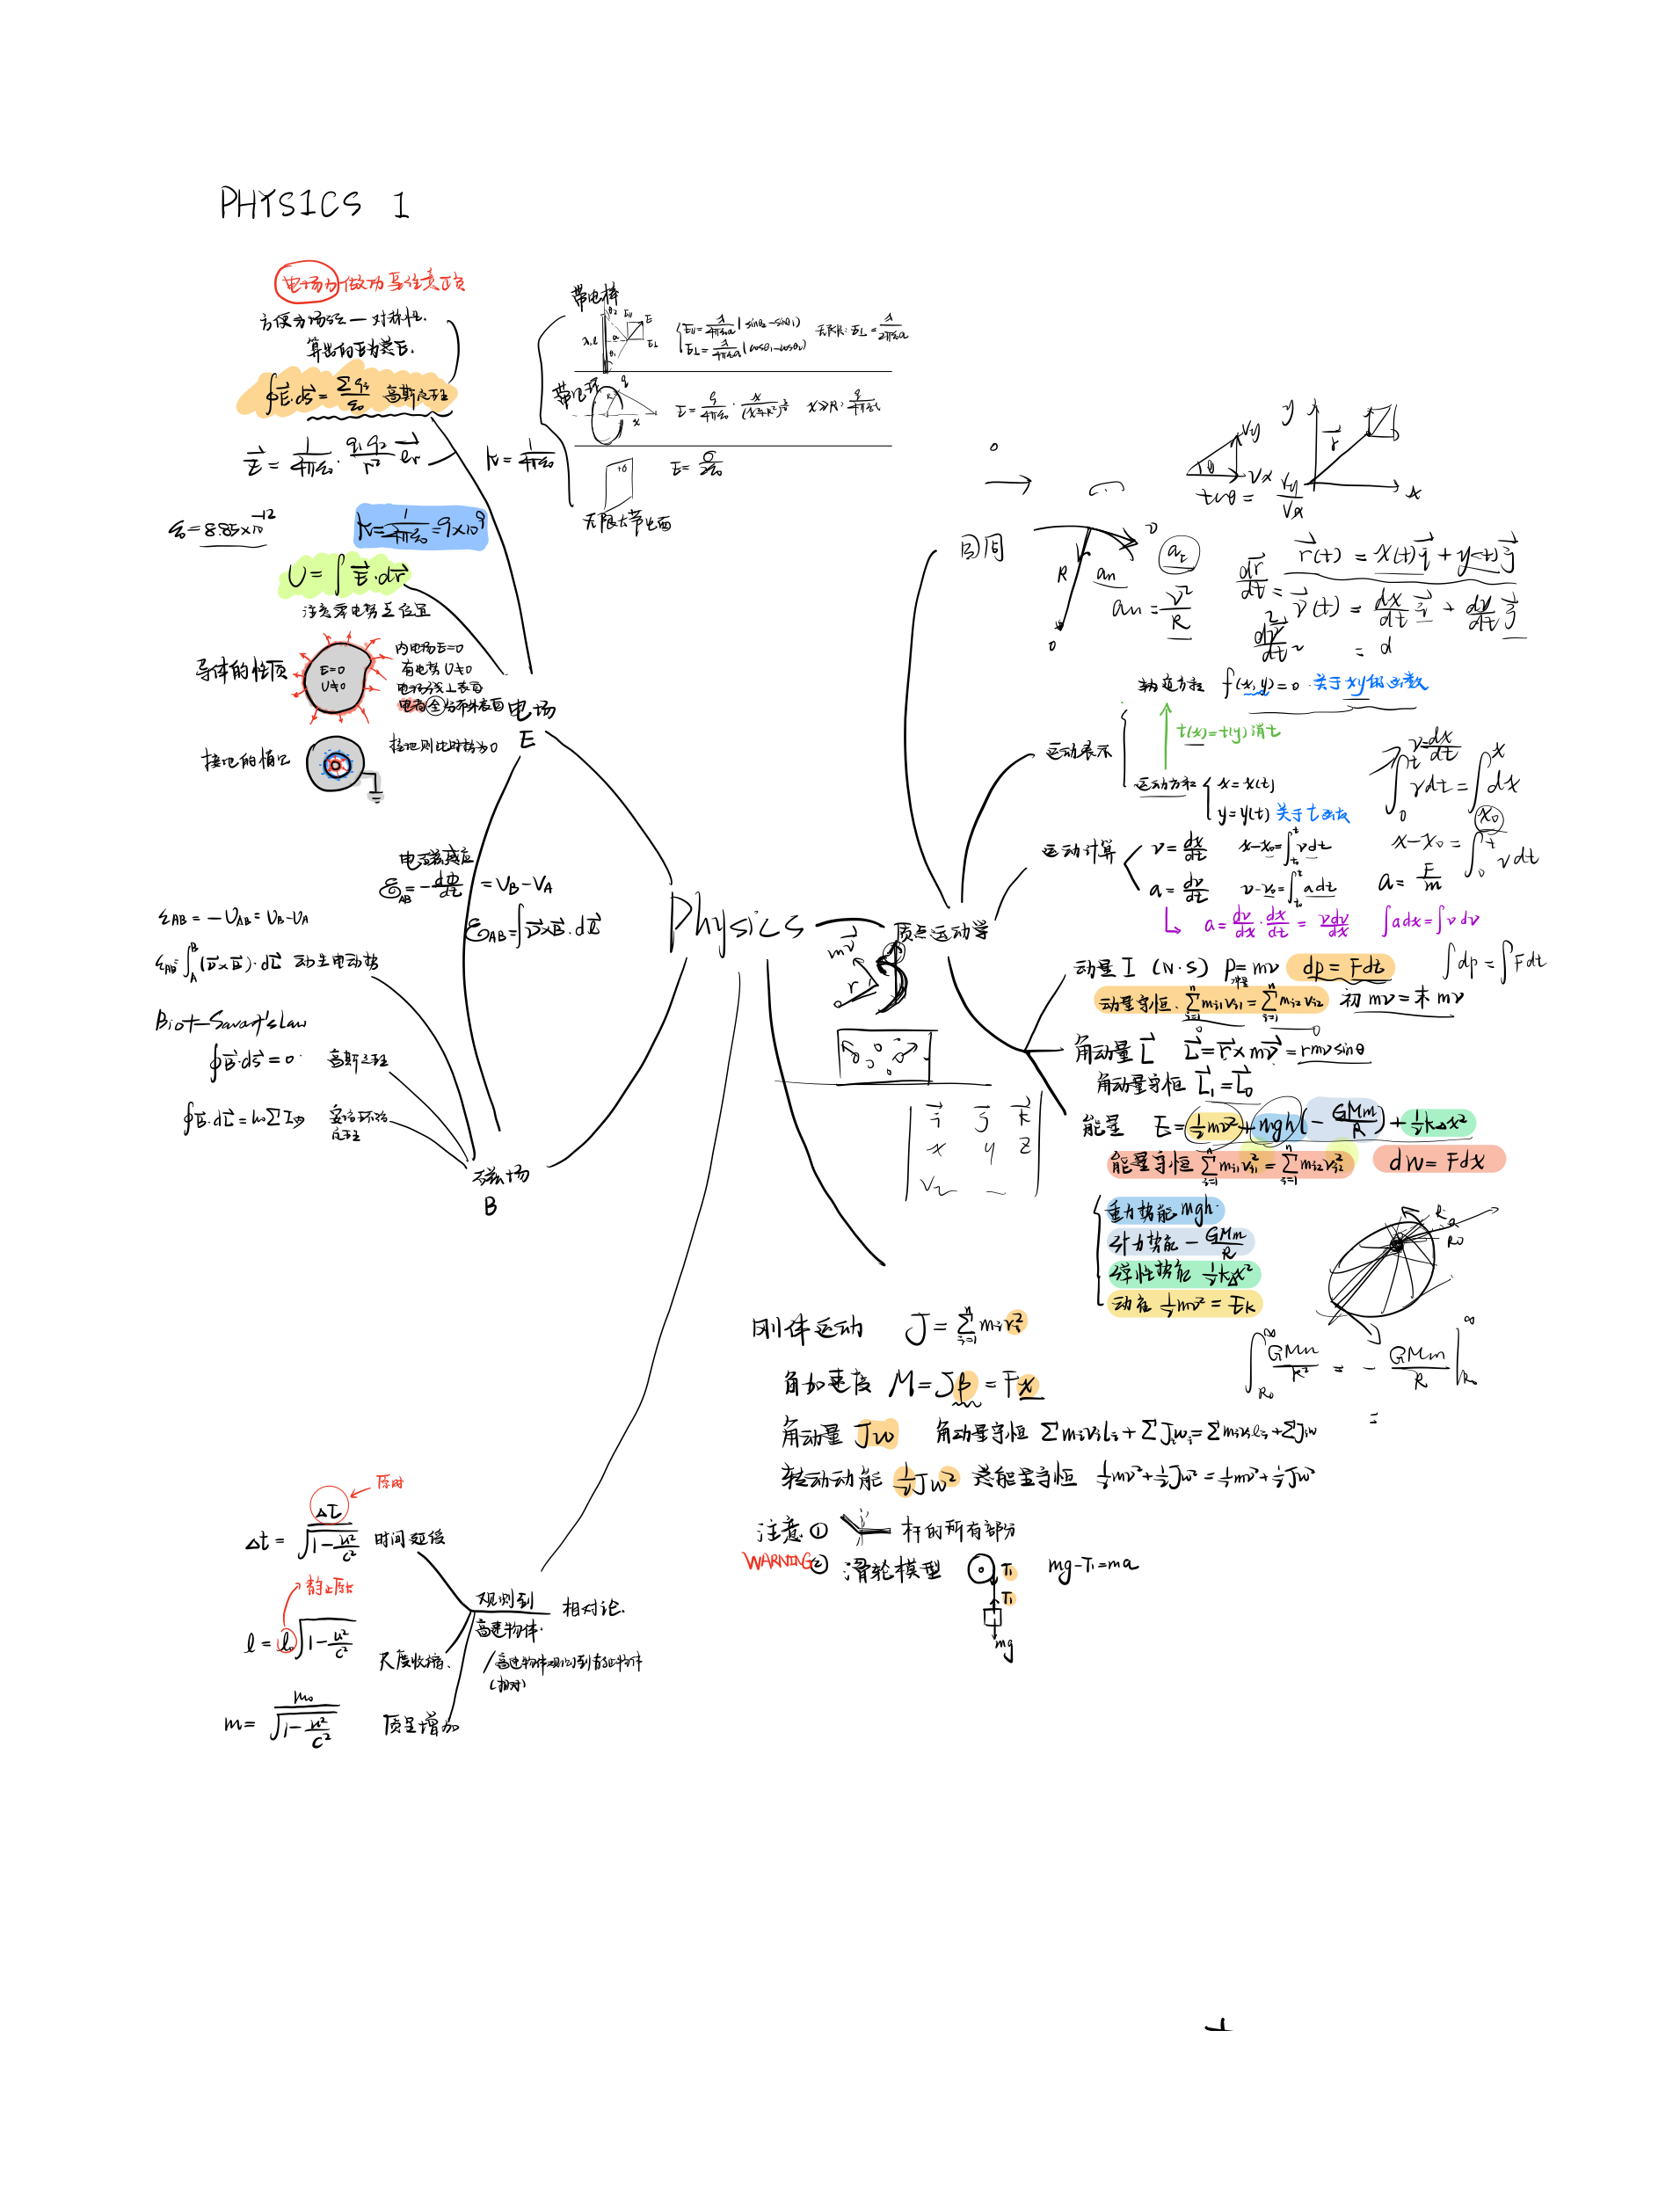 PHYSICS 1
电场力做功要注意正负
方便力场强一对称性.
算出的E为总E.
∮E⃗·dS⃗ = Σqi/ε0 高斯定理
E⃗ = 1/4πε0 · q1q2/r² e⃗r
k = 1/4πε0
ε0 = 8.85×10⁻¹²
k = 1/4πε0 = 9×10⁹
U = ∫E⃗·dr⃗
注意零电势点位置
导体的性质
E=0
U≠0
内电场E=0
有电势 U≠0
电场线⊥表面
电荷全分布外表面
接地的情况
接地则此时势为0
电场
E
带电棒
λ,l
E∥ = λ/4πε0a (sinθ2-sinθ1)
E⊥ = λ/4πε0a (cosθ1-cosθ2)
无限长: E⊥ = λ/2πε0a
带电环
E = q/4πε0 · x/(x²+R²)^3/2
x≫R:
+σ
E = σ/2ε0
无限大带电面
电磁感应
ℰAB = -dΦ/dt = UB-UA
ℰAB = ∫v⃗×B⃗·dL⃗
εAB = -UAB = UB-UA
εAB = ∫_A^B (v⃗×B⃗)·dL⃗ 动生电动势
Biot-Savart's Law
∮B⃗·dS⃗ = 0 高斯定理
∮B⃗·dL⃗ = μ0ΣI内 安培环路定理
磁场
B
Physics
质点运动学
mv⃗
r
i⃗ j⃗ k⃗
x y z
tanθ = Vy/Vx
Vy
Vx
θ
y
r⃗
x
v
at
R
an
an = v²/R
o
r⃗(t) = x(t)i⃗ + y(t)j⃗
dr⃗/dt = v⃗(t) = dx/dt i⃗ + dy/dt j⃗
轨迹方程 f(x,y)=0 · 关于xy的函数
t(x)=t(y) 消t
运动表示
运动方程 { x=x(t)
y=y(t) 关于t函数
v=dx/dt
∫_0^t vdt = ∫_x0^x dx
x-x0 = ∫_0^t vdt
运动计算
v = dx/dt x-x0=∫_t0^t vdt
a = dv/dt v-v0=∫_t0^t adt
a = F/m
a = dv/dx · dx/dt = vdv/dx ∫adx=∫vdv
动量 I (N·S) P=mv dp=Fdt ∫dp=∫Fdt
冲量
动量守恒. Σ_{i=1}^n mi1vi1 = Σ_{i=1}^n mi2vi2 初mv=末mv
角动量 L⃗ L⃗=r⃗×mv⃗=rmvsinθ
角动量守恒 L⃗1=L⃗0
能量 E=½mv²+mgh(-GMm/R)+½kΔx²
能量守恒 Σ_{i=1}^n mi1vi1² = Σ_{i=1}^n mi2vi2² dW=Fdx
重力势能 mgh.
引力势能 -GMm/R
弹性势能 ½kΔx²
动能 ½mv²=Ek
R0
∫_R0^∞ GMm/R² = -GMm/R |_R^∞
=
刚体运动 J=Σ_{i=1}^n miri²
角加速度 M=Jβ=Fx
角动量 Jω 角动量守恒 Σmivili+ΣJiωi=Σmivili+ΣJiω
转动动能 ½Jω² 总能量守恒 ½mv²+½Jω²=½mv²+½Jω²
注意① 杆的所有部分
WARNING② 滑轮模型
T1
T1
mg
mg-T1=ma
原时
Δt = Δτ/√(1-u²/c²) 时间延缓
静止原长
l = l0√(1-u²/c²)
尺度收缩.
m = m0/√(1-u²/c²) 质量增加
观测到
高速物体.
相对论.
高速物体观测到静止物体
(相对)